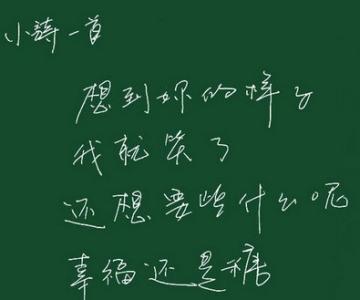 小詩一首
想到妳的样子
我就笑了
还想要些什么呢
幸福还是糖